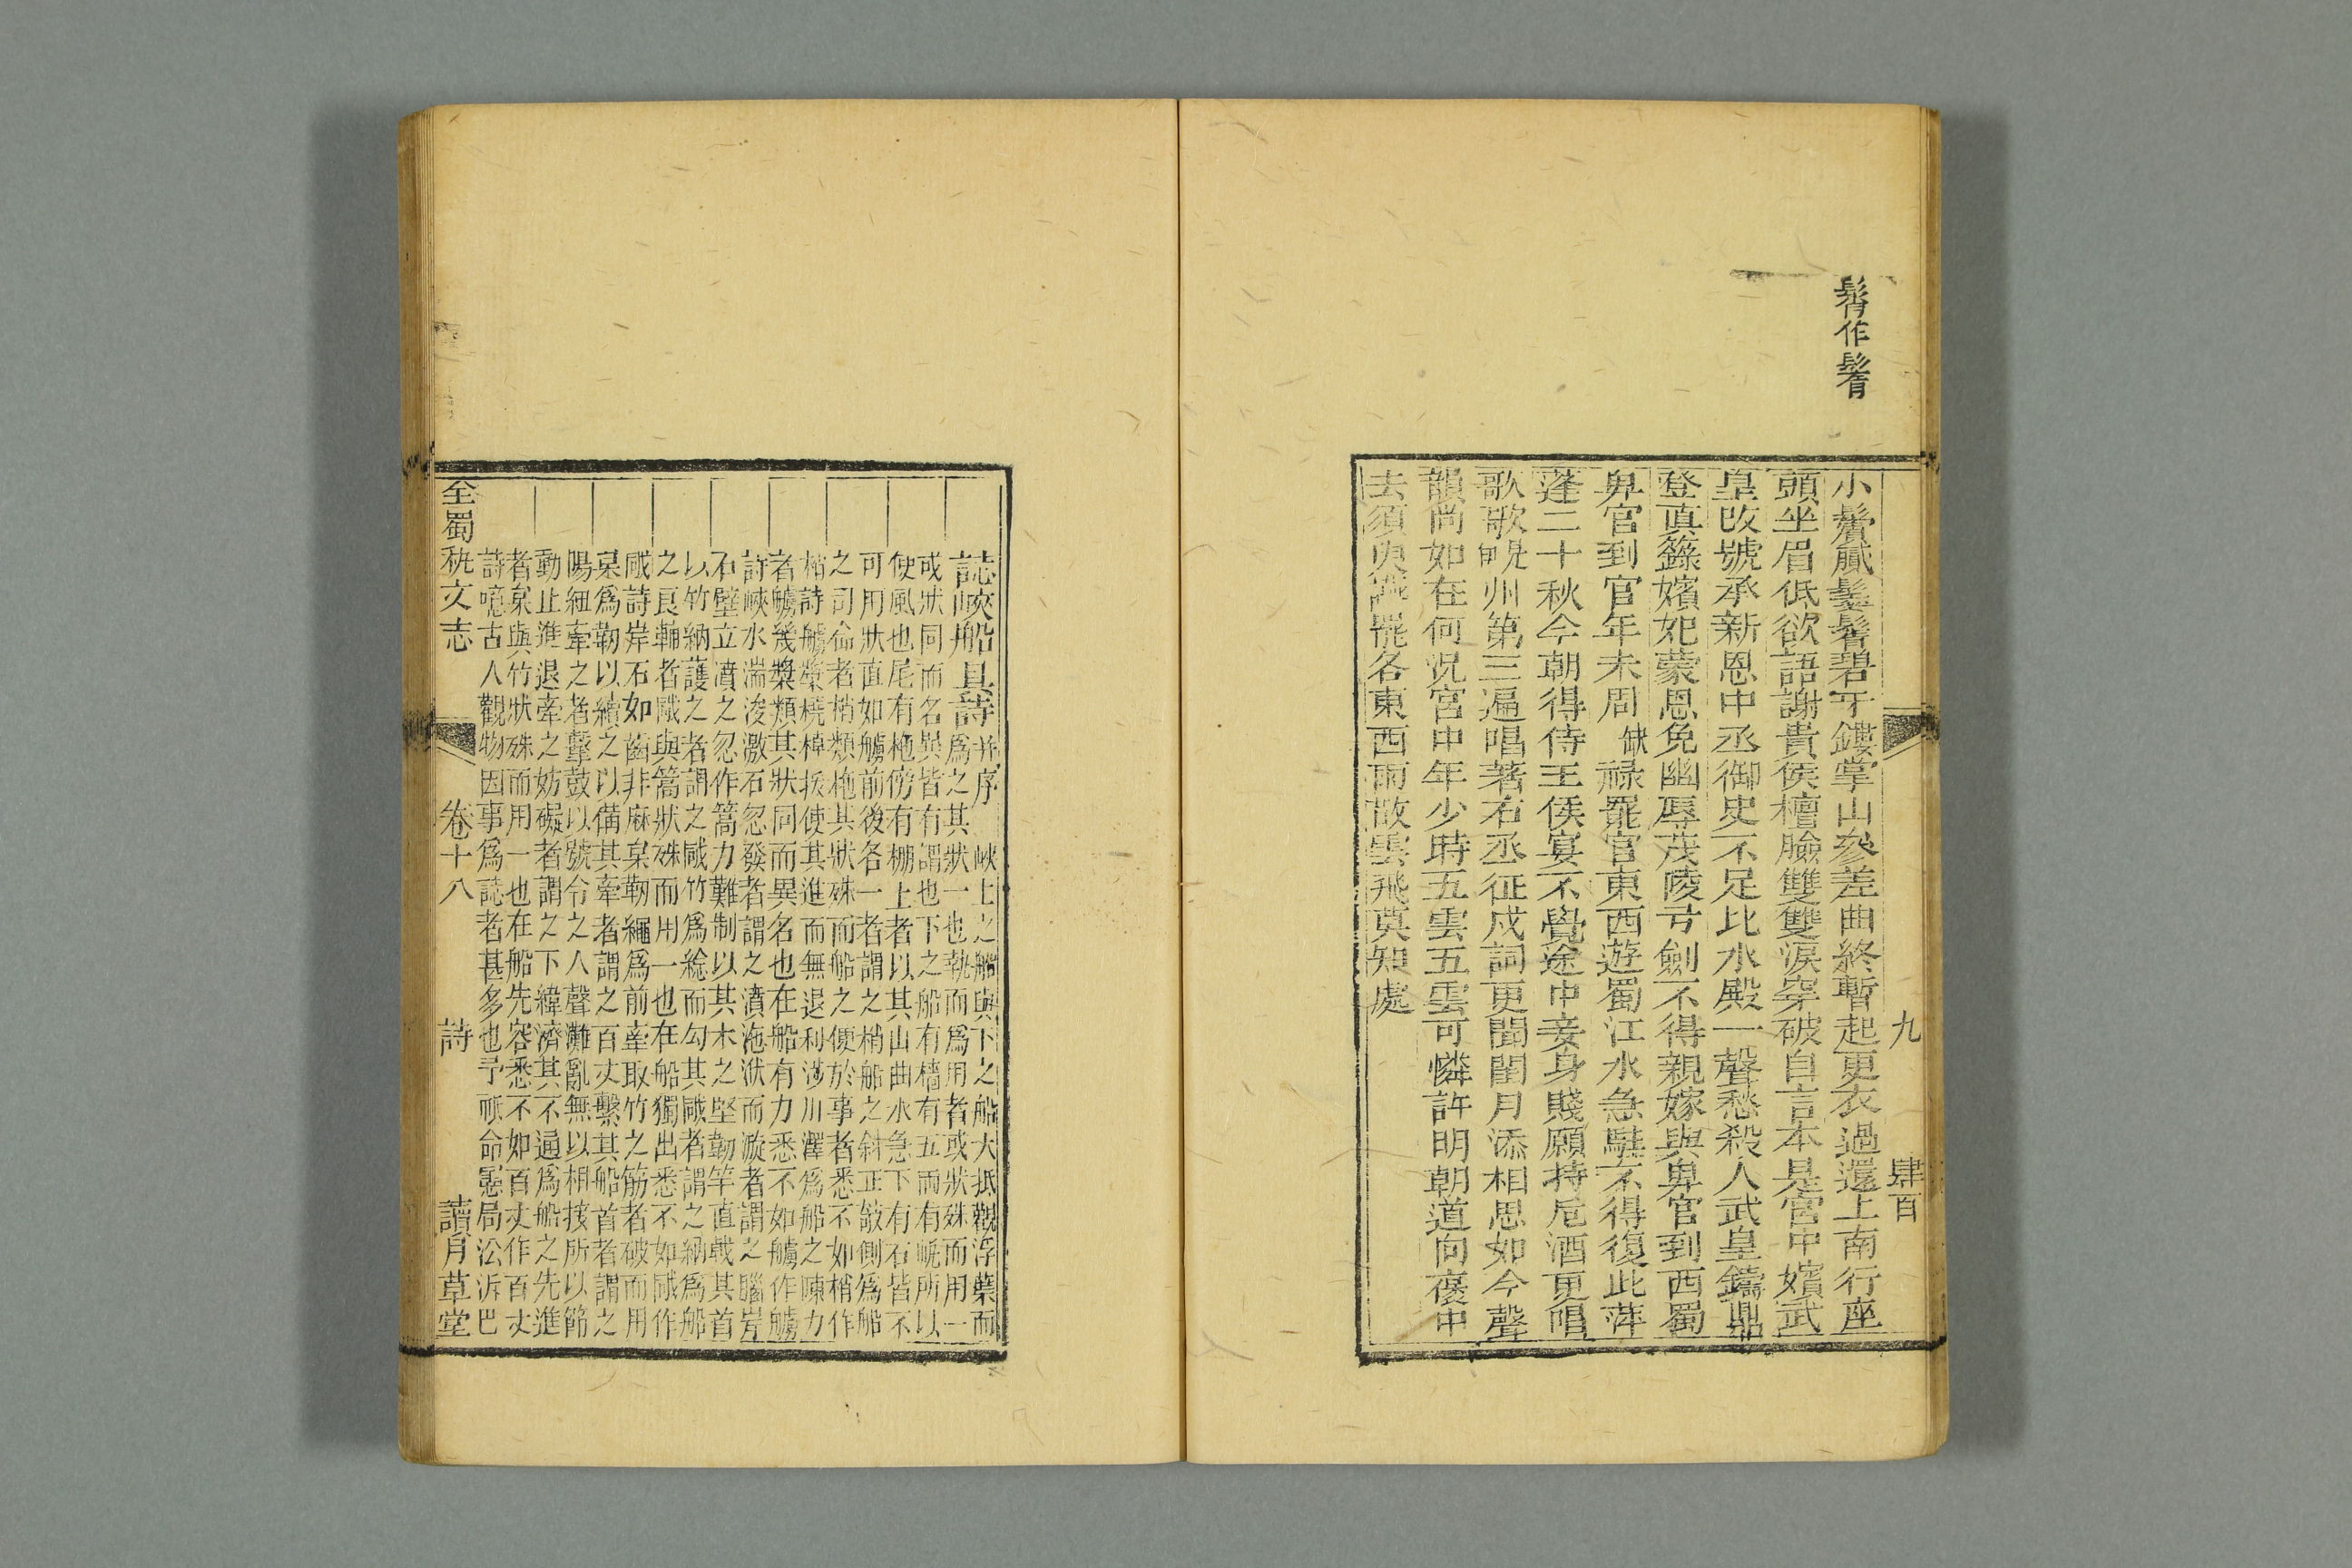 鬅作鬌
九
肆百
小鬟膩鬟鬌碧牙鏤掌山參差曲終暫起更衣過還上南行座
頭坐眉低欲語謝貴侯檀臉雙雙淚穿破自言本是宮中嬪武
皇改號承新恩中丞御史不足比水殿一聲愁殺人武皇鑄鼎
登真籙嬪妃蒙恩免幽辱茂陵弓劍不得親嫁與卑官到西蜀
卑官到官年未周缺祿罷官東西遊蜀江水急駐不得復此萍
蓬二十秋今朝得侍王侯宴不覺途中妾身賤願持卮酒更唱
歌歌是州第三遍唱著右丞征戍詞更聞閨月添相思如今聲
韻尚如在何況宮中年少時五雲五雲可憐許明朝道向褒中
去須臾罷各東西雨散雲飛莫知處
誌峽船具詩并序
峽上之船與下之船大抵觀浮葉而
爲之其狀一也執而爲用者或狀殊而用一
或狀同而名異皆有謂也下之船有檣有五兩有帆所以
使風也尾有柂傍有棚上者以其山曲水急下有石皆不
可用狀直如艣前後各一者謂之梢船之斜正攲側爲船
之司命者梢類柂其狀殊而船之便於事者悉不如梢作
梢詩艣槳橈棹拔使其進而無退利涉川澤爲船之陳力
者艣幾槳類其狀同而異名也在船有力悉不如艣作艣
詩峽水湍浚激石忽發者謂之濆沲洑而漩者謂之腦岸
石壁立濆之忽作篙力難制以其木之堅韌竿直戟其首
以竹納護之者謂之戙竹爲絵而勾其戙者謂之納爲船
之良輔者戙與篙狀殊而用一也在船獨出悉不如戙作
戙詩岸石如齒非麻枲韌繩爲前牽取竹之筋者破而用
枲爲韌以續之以備其牽者謂之百丈繫其船首者謂之
陽紐牽之者擊鼓以號令之人聲灘亂無以相接所以節
動止進退牽之妨礙者謂之下緯濟其不通爲船之先進
者枲與竹狀殊而用一也在船先容悉不如百丈作百丈
詩噫古人觀物因事爲誌者甚多也予祇命憲局㳂泝巴
全蜀秇文志
卷十八
詩
讀月草堂